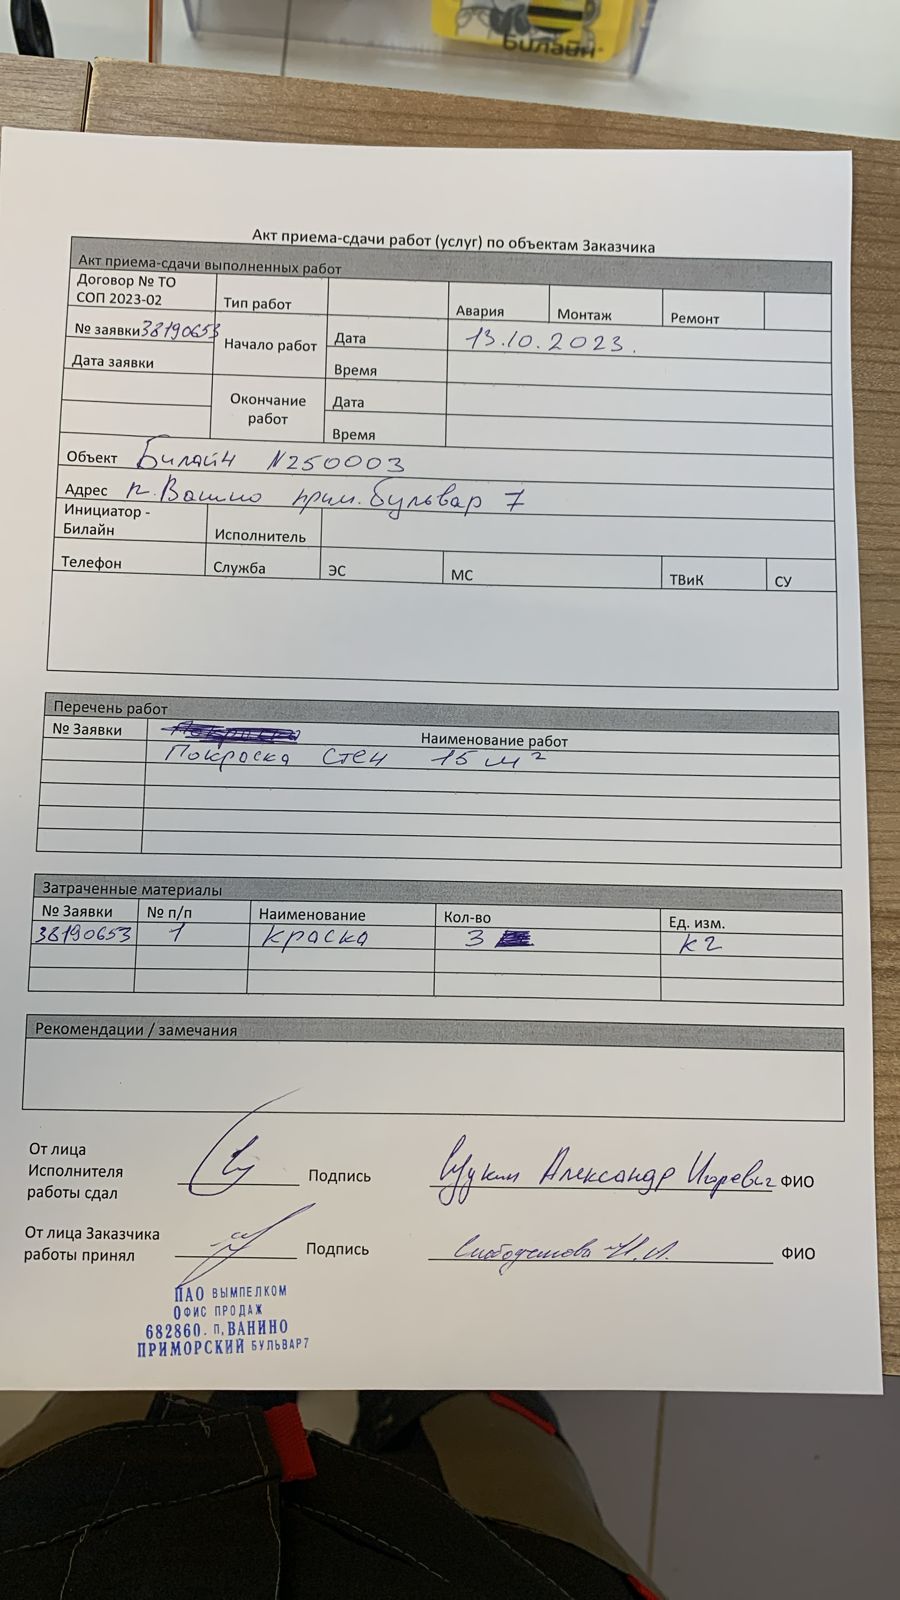 Билайн
Акт приема-сдачи работ (услуг) по объектам Заказчика
Акт приема-сдачи выполненных работ
Договор № ТО СОП 2023-02 Тип работ Авария Монтаж Ремонт
№ заявки 38190653 Начало работ Дата 13.10.2023.
Дата заявки Время
Окончание работ Дата
Время
Объект Билайн N250003
Адрес п. Ванино прим. бульвар 7
Инициатор - Билайн Исполнитель
Телефон Служба ЭС МС ТВиК СУ
Перечень работ
№ Заявки Наименование работ
Покраска стен 15 м²
Затраченные материалы
№ Заявки № п/п Наименование Кол-во Ед. изм.
38190653 1 краска 3 кг
Рекомендации / замечания
От лица
Исполнителя
работы сдал Подпись Щукин Александр Игоревич ФИО
От лица Заказчика
работы принял Подпись ФИО
ПАО ВЫМПЕЛКОМ
ОФИС ПРОДАЖ
682860. П, ВАНИНО
ПРИМОРСКИЙ БУЛЬВАР7